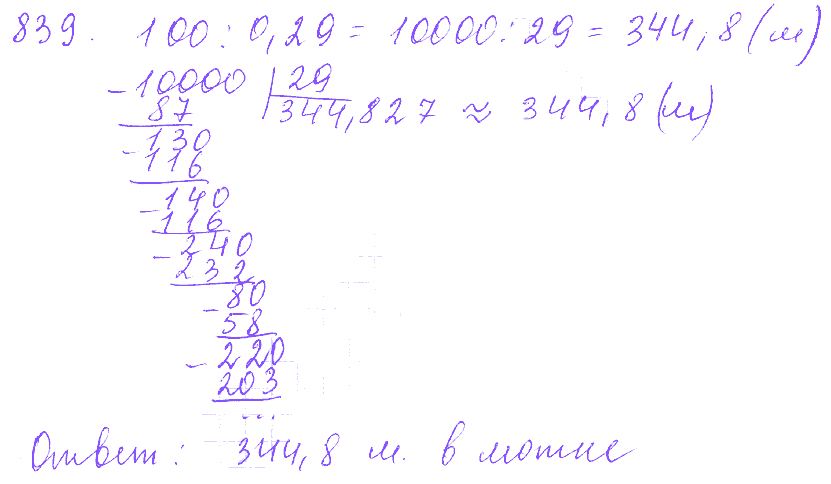 839. 100 : 0,29 = 10000 : 29 = 344,8 (м)
-10000 | 29
87 344,827 ≈ 344,8 (м)
-130
116
-140
116
-240
232
-80
58
-220
203
...
Ответ: 344,8 м. в мотке